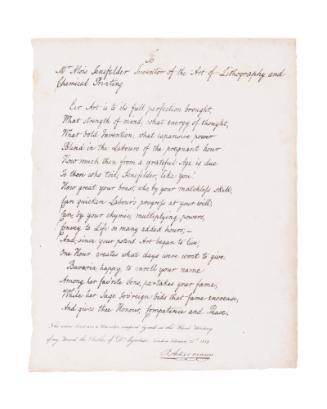 To
Mr Alois Senefelder Inventor of the Art of Lithography and
Chemical Printing
Ere Art is to its full perfection brought,
What strength of mind, what energy of thought,
What bold Invention, what expansive power
Blend in the Labours of the pregnant hour
How much then from a grateful Age is due
To those who toil, Senefelder, like You!
How great your boast, who by your matchless skill,
Can quicken Labour's progress at your will;
Can, by your rhymes, multiplying powers,
Convey to Life so many added hours;—
And since your potent Art began to live,
One Hour creates what days were wont to give.
Bavaria, happy, to enroll your name
Among her fav'rite Sons, partakes your fame;
While her Sage Sov'reign bids that fame encrease,
And gives thee Honour, Competence and Peace.
The above lines are a
of my Friend the Author of Dr Syntax London
R Ackermann